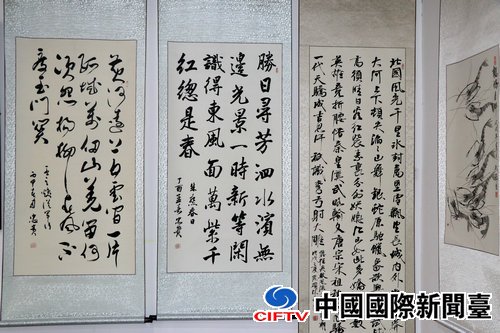 北國風光千里冰封萬里雪飄望長城内外
大河上下頓失滔滔山舞銀蛇原馳蠟象欲與
須晴日看紅裝素裹分外妖嬈江山如此多嬌
英雄競折腰惜秦皇漢武略輸文采唐宗宋祖稍
一代天驕成吉思汗祗識彎弓射大雕
勝日尋芳泗水濱無
邊光景一時新等閑
識得東風面萬紫千
紅總是春
朱熹春日
丁酉孟春忠貴
黄河遠上白雲間一片
孤城萬仞山羌笛何
須怨楊柳春風不
度玉門關
CIFTV 中國國際新聞臺